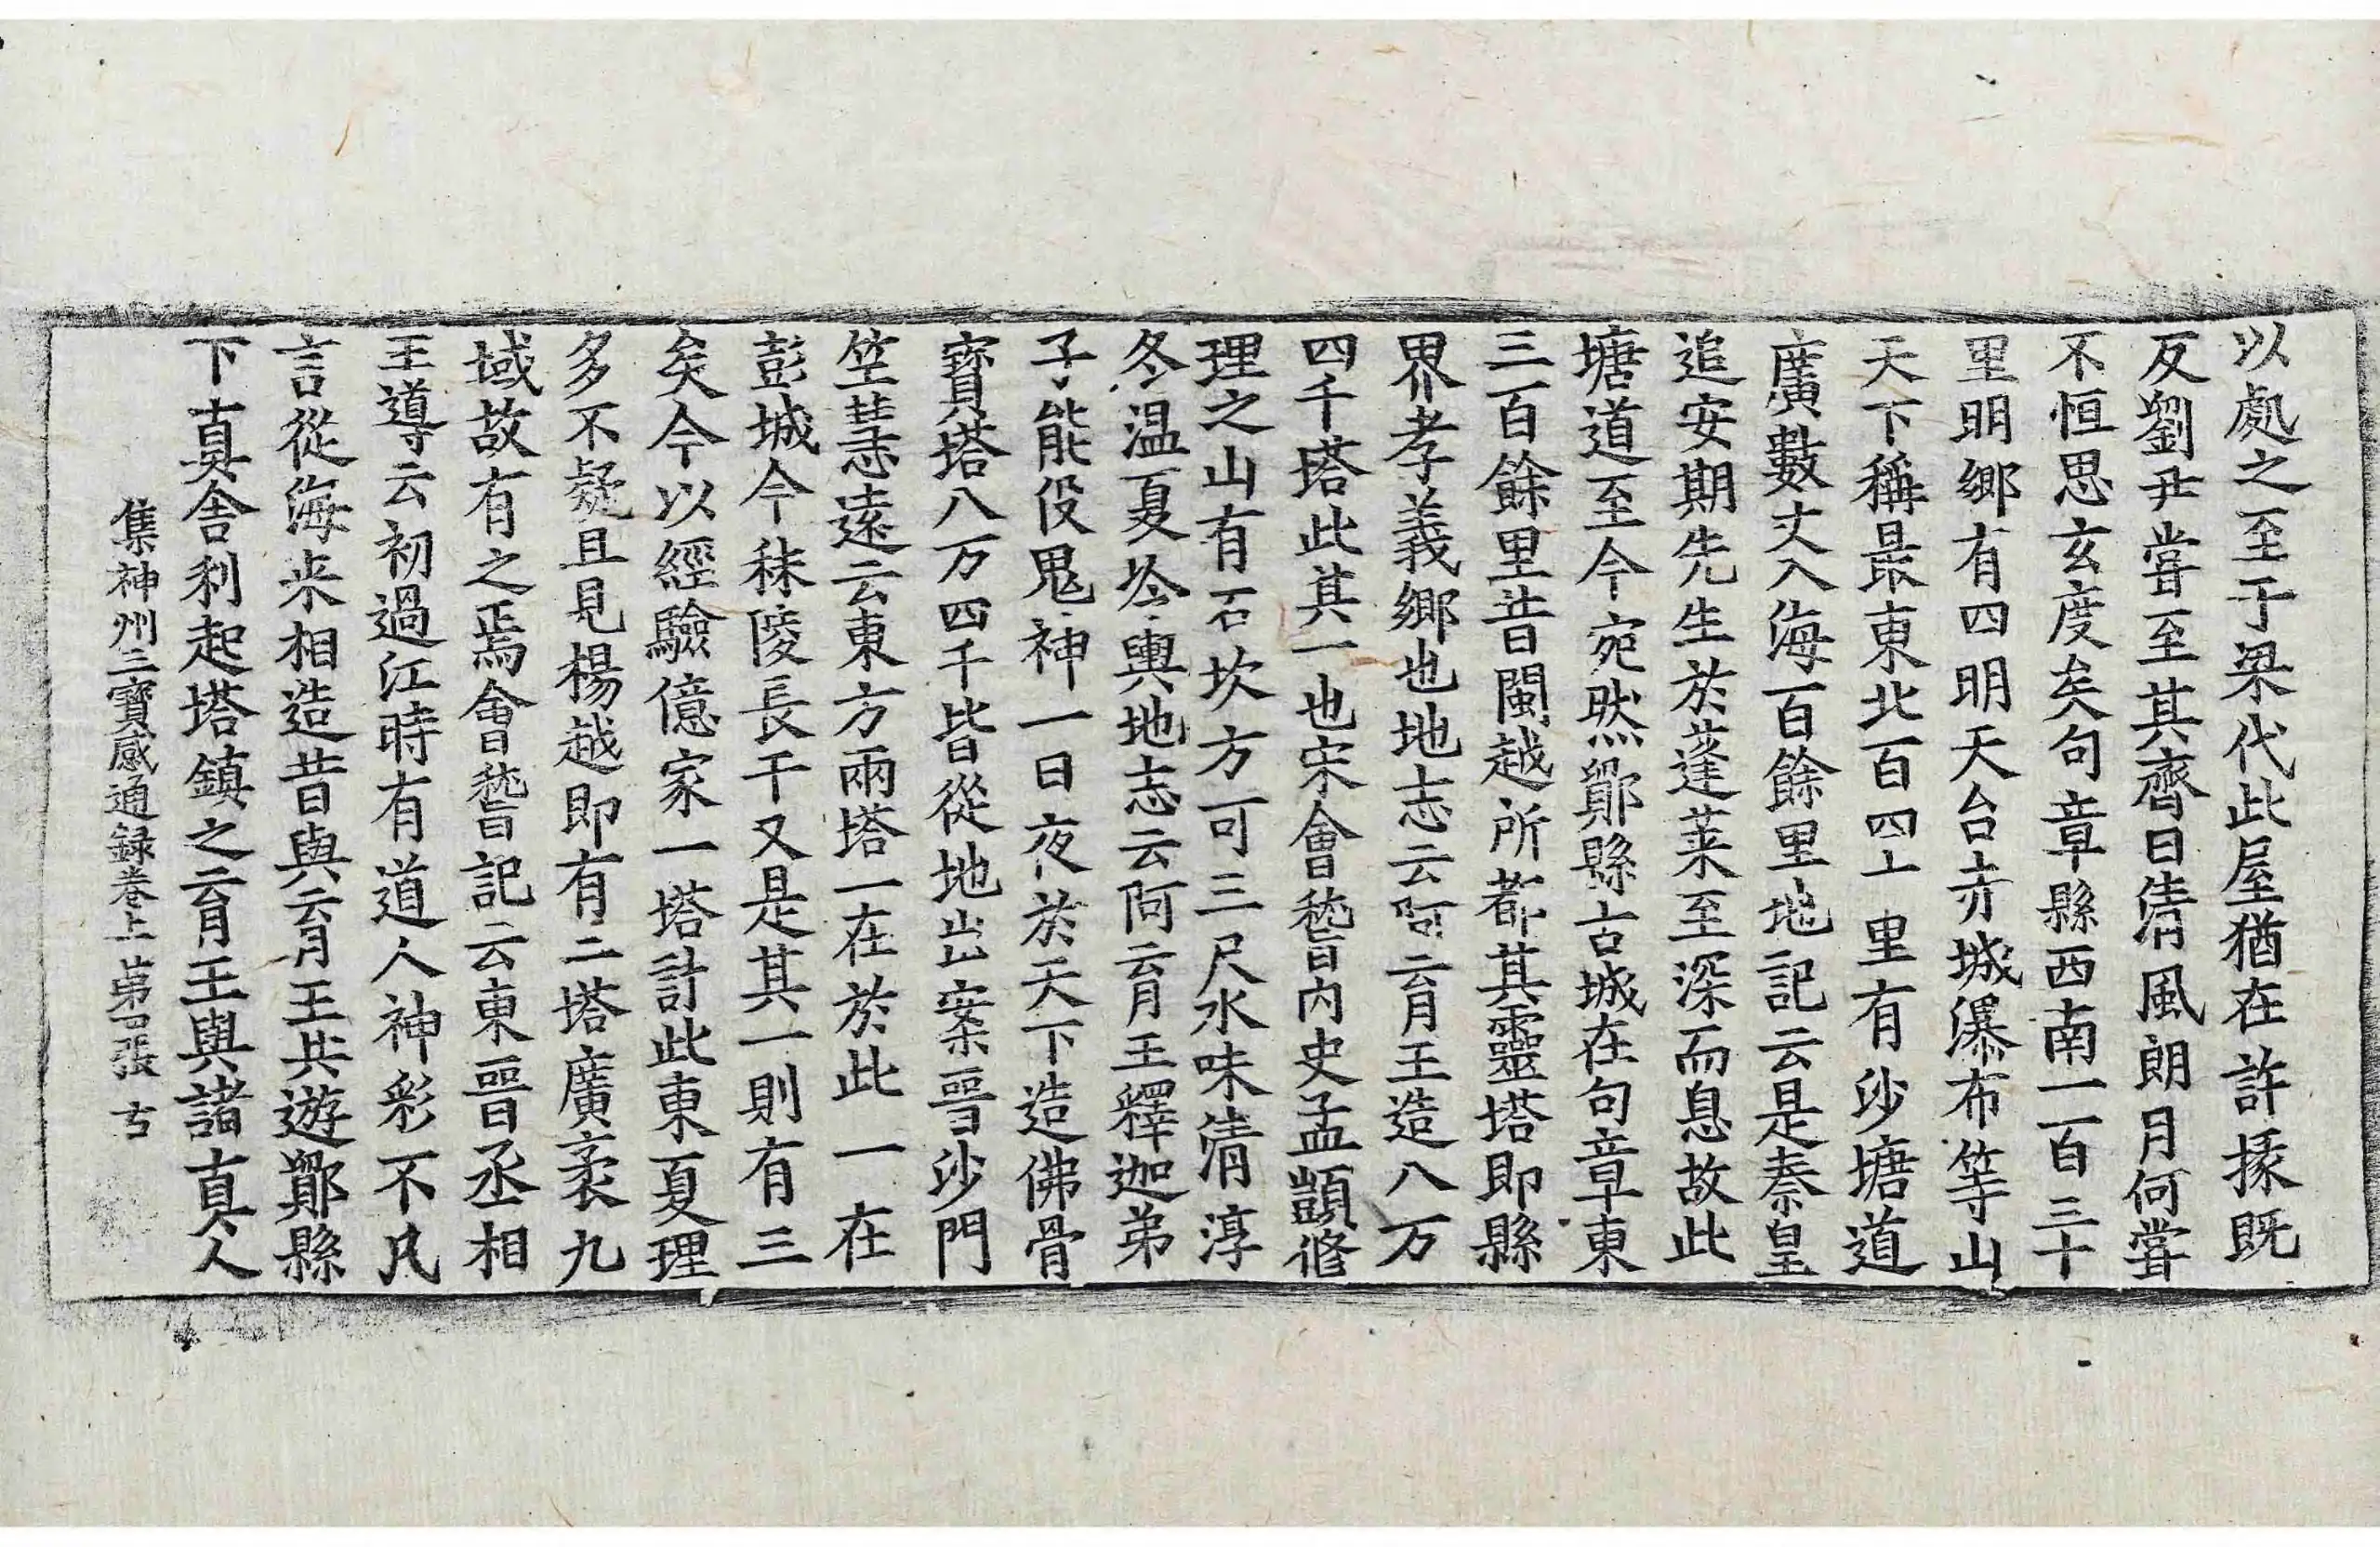 以處之至于梁代此屋猶在許掾既
反劉尹嘗至其齋曰清風朗月何嘗
不恒思玄度矣句章縣西南一百三十
里明鄉有四明天台赤城瀑布等山
天下稱最東北百四上里有沙塘道
廣數丈入海百餘里地記云是秦皇
追安期先生於蓬莱至深而息故此
塘道至今宛然鄮縣古城在句章東
三百餘里昔閩越所都其靈塔即縣
界孝義鄉也地志云阿育王造八万
四千塔此其一也宋會嵇内史孟顗修
理之山有石坎方可三尺水味清淳
冬温夏冷輿地志云阿育王釋迦弟
子能役鬼神一日夜於天下造佛骨
寶塔八万四千皆從地出案晉沙門
竺慧遠云東方兩塔一在於此一在
彭城今秣陵長干又是其一則有三
矣今以經驗億家一塔計此東夏理
多不疑且見楊越即有二塔廣袤九
域故有之焉會嵇記云東晉丞相
王導云初過江時有道人神彩不凡
言從海来相造昔與育王共遊鄮縣
下真舍利起塔鎮之育王與諸真人
集神州三寶感通録卷上 第四張 古